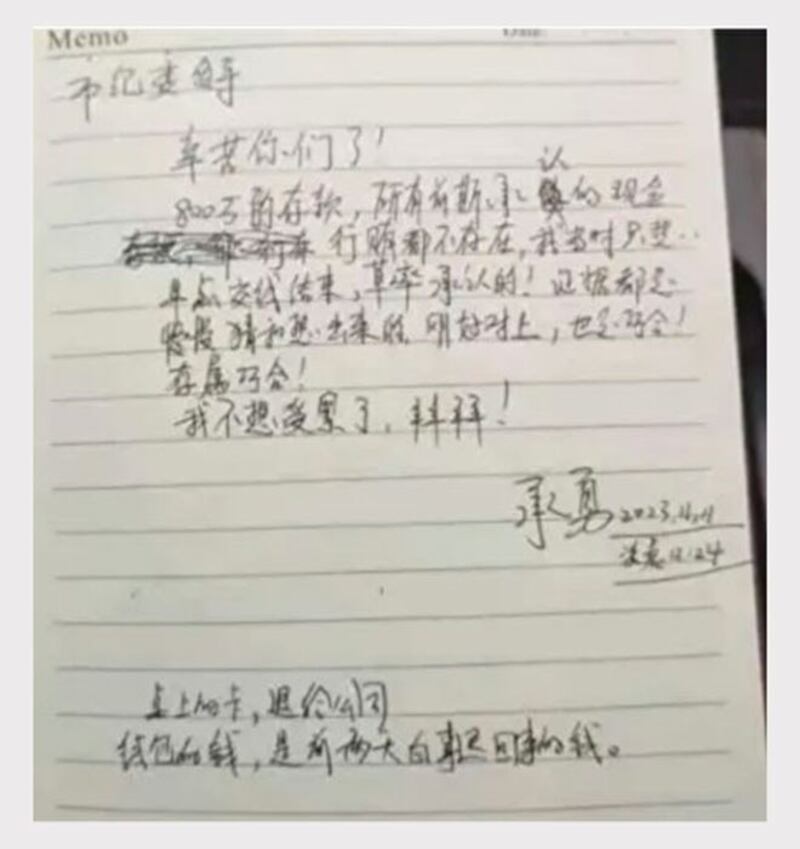 Memo
市纪委领导
辛苦你们了！
认
800万的存款，所有前期承的现金
行贿都不存在，我当时只想
早点交代结束，草率承认的！证据都是
猜和想出来的，刚好对上，也是巧合！
存属巧合！
我不想受累了，拜拜！
承勇 2023.11.11
凌晨12:24
桌上的卡，退给公司
钱包的钱，是前两天白事回事的钱。